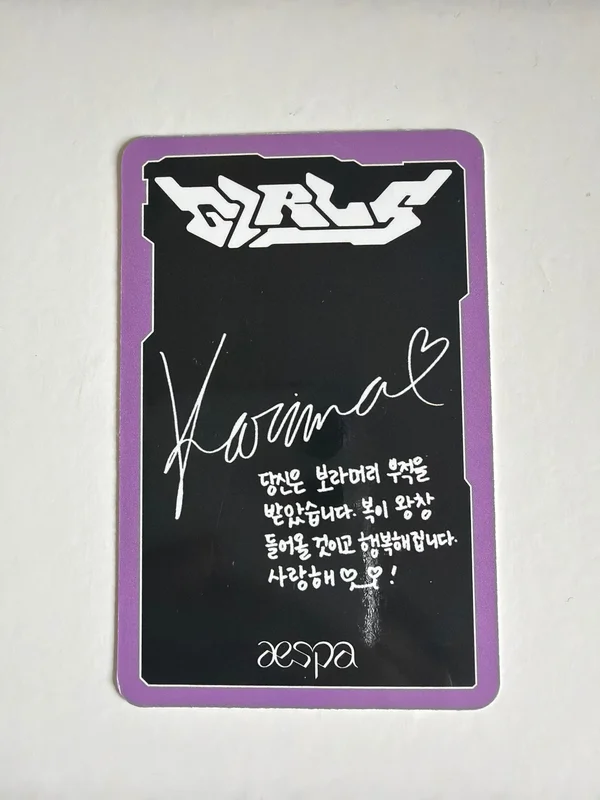 GIRLS
Karina♡
당신은 보라머리 부적을
받았습니다. 복이 왕창
들어올 것이고 행복해집니다.
사랑해 ♡_♡ !
aespa